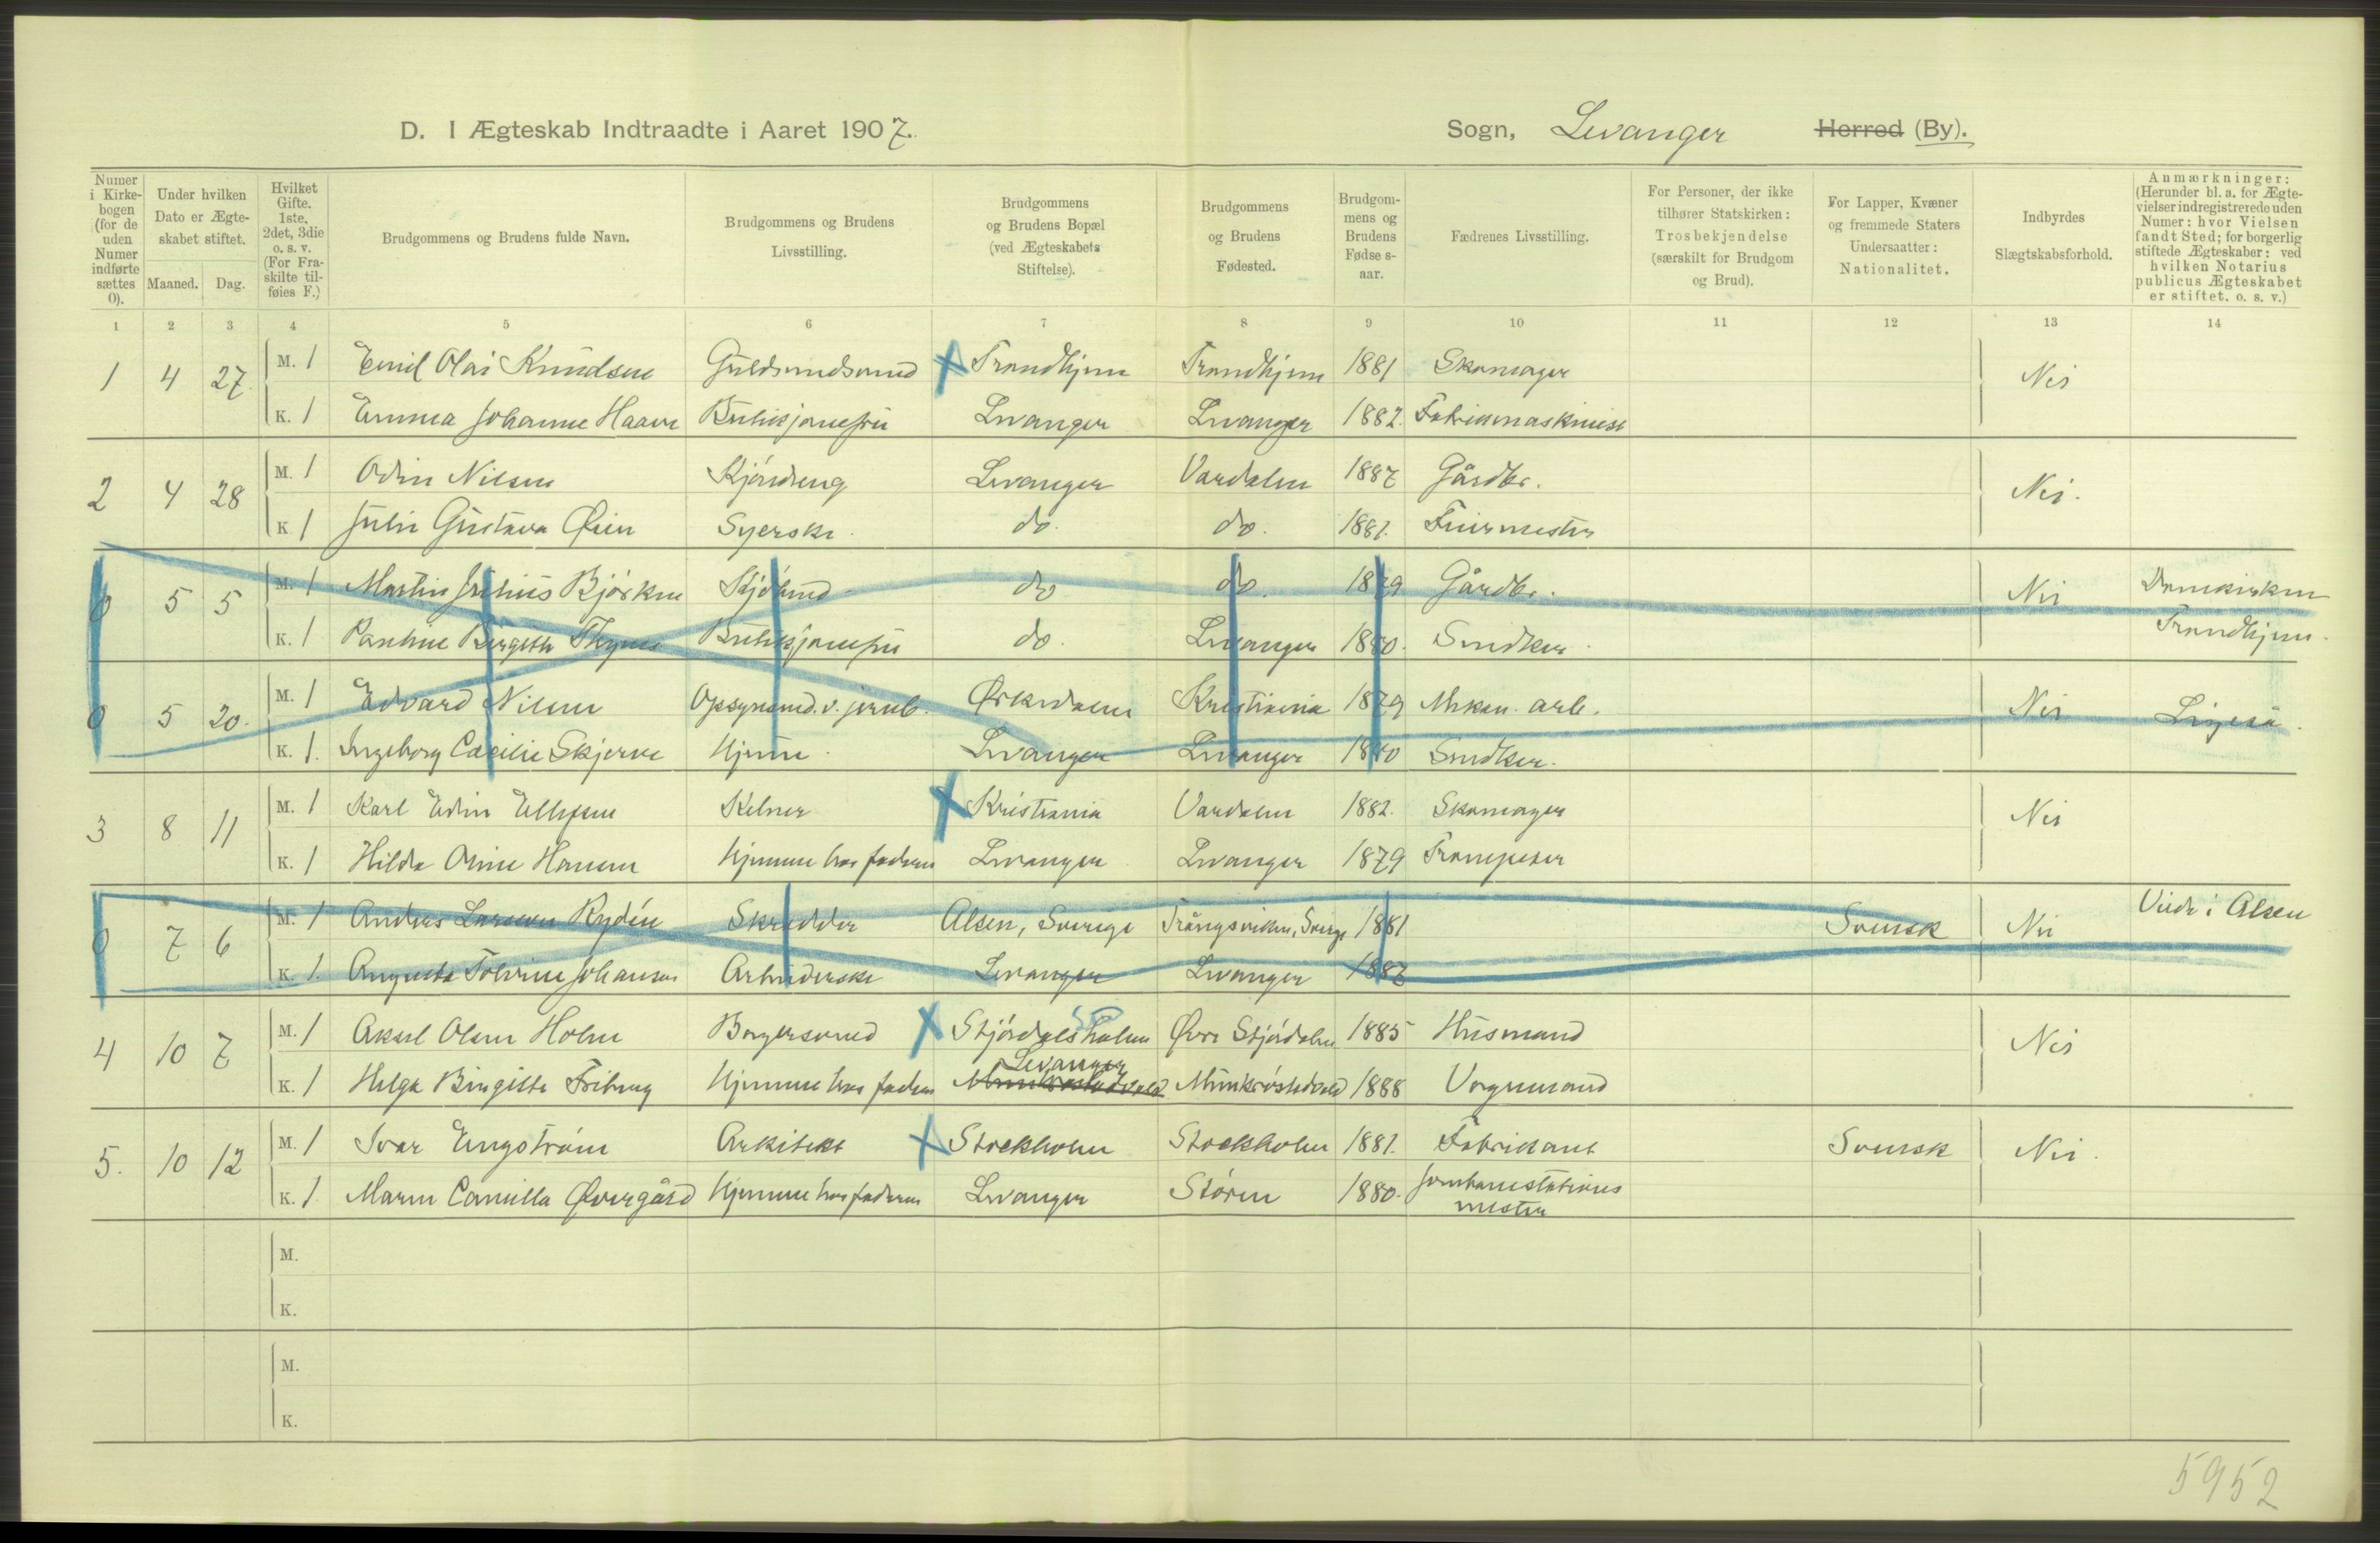 D. I Ægteskab Indtraadte i Aaret 1907. Sogn, Levanger Herred (By).
Numer i Kirke-bogen (for de uden Numer indførte sættes 0).
Under hvilken Dato er Ægte-skabet stiftet.
Maaned. Dag.
Hvilket Gifte. 1ste, 2det, 3die o. s. v. (For Fra-skilte til-føies F.)
Brudgommens og Brudens fulde Navn.
Brudgommens og Brudens Livsstilling.
Brudgommens og Brudens Bopæl (ved Ægteskabets Stiftelse).
Brudgommens og Brudens Fødested.
Brudgom-mens og Brudens Fødse s-aar.
Fædrenes Livsstilling.
For Personer, der ikke tilhører Statskirken: Trosbekjendelse (særskilt for Brudgom og Brud).
For Lapper, Kvæner og fremmede Staters Undersaatter: Nationalitet.
Indbyrdes Slægtskabsforhold.
Anmærkninger: (Herunder bl. a. for Ægte-vielser indregistrerede uden Numer: hvor Vielsen fandt Sted; for borgerlig stiftede Ægteskaber: ved hvilken Notarius publicus Ægteskabet er stiftet. o. s. v.)
1 2 3 4 5 6 7 8 9 10 11 12 13 14
1 4 27 M. 1 Emil Olai Knudsen Guldsmedsvend Trondhjem Trondhjem 1881 Skomager Nei
K. 1 Emma Johanne Haave Butikjomfru Levanger Levanger 1882. Fabrikmaskinist
2 4 28 M. 1 Odin Nilsen Kjøredreng Levanger Værdalen 1887 Gårdbr. Nei.
K 1 Julie Gustava Øien Syerske do. do. 1881. Feiermester
0 5 5 M. 1 Martin Julius Bjørken Skjøland do do. 1879 Gårdbr. Nei Domkirken
K. 1 Pauline Birgitte Butikjomfru do. Levanger 1880. Snedker Trondhjem.
0 5 20. M. 1 Edvard Nilsen Opsynsmd. v. jernb. Ørkedalen Kristiania 1879 Mekan. arb. Nei
K. 1. Ingeborg Cæcilie Skjerve Hjemme Levanger Levanger 1880 Snedker.
3 8 11 M. 1 Karl Edin Ellefsen Kelner Kristiania Værdalen 1882. Skomager Nei
K. 1 Hilda Oline Hansen Hjemme hos faderen Levanger Levanger 1879
0 7 6 M. 1 Anders Larsson Rydén Skrædder Alsen, Sverige Trångsviken, Sverige 1881 Svensk Nei Viede i Alsen
K. 1. Augusta Johansen Arbeiderske Levanger Levanger 1887
4 10 7 M. 1 Aksel Olsen Holm Borgersvend Stjørdalshalsen Øvre Stjørdalen 1885 Husmand Nei
Levanger
K. 1 Helga Birgitte Friberg Hjemme hos faderen Munkrøstadvald Munkrøstadvald 1888 Vognmand
5. 10 12 M. 1 Ivar Engström Arkitekt Stockholm Stockholm 1881. Fabrikant Svensk Nei.
K. 1. Maren Camilla Øvergård Hjemme hos faderen Levanger Støren 1880. Jernbanestations
mester
M.
K.
M.
K.
5952